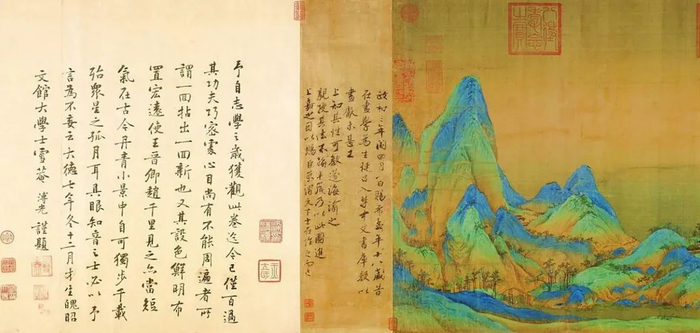 政和三年閏四月八日賜希孟年十八歲昔
在畫學為生徒召入禁中文書庫數以
畫獻未甚工
上知其性可教遂誨諭之
親授其法不踰半歲乃以此圖進
上嘉之因以賜臣京謂天下士在作之而已
予自志學之歲獲觀此卷迄今已僅百過
其功夫巧密處心目尚有不能周遍者所
謂一回拈出一回新也又其設色鮮明布
置宏遠使王晉卿趙千里見之亦當短
氣在古今丹青小景中自可獨步千載
殆衆星之孤月耳具眼知音之士必以予
言為不妄云大德七年冬十二月才生魄昭
文館大學士雪菴溥光謹題